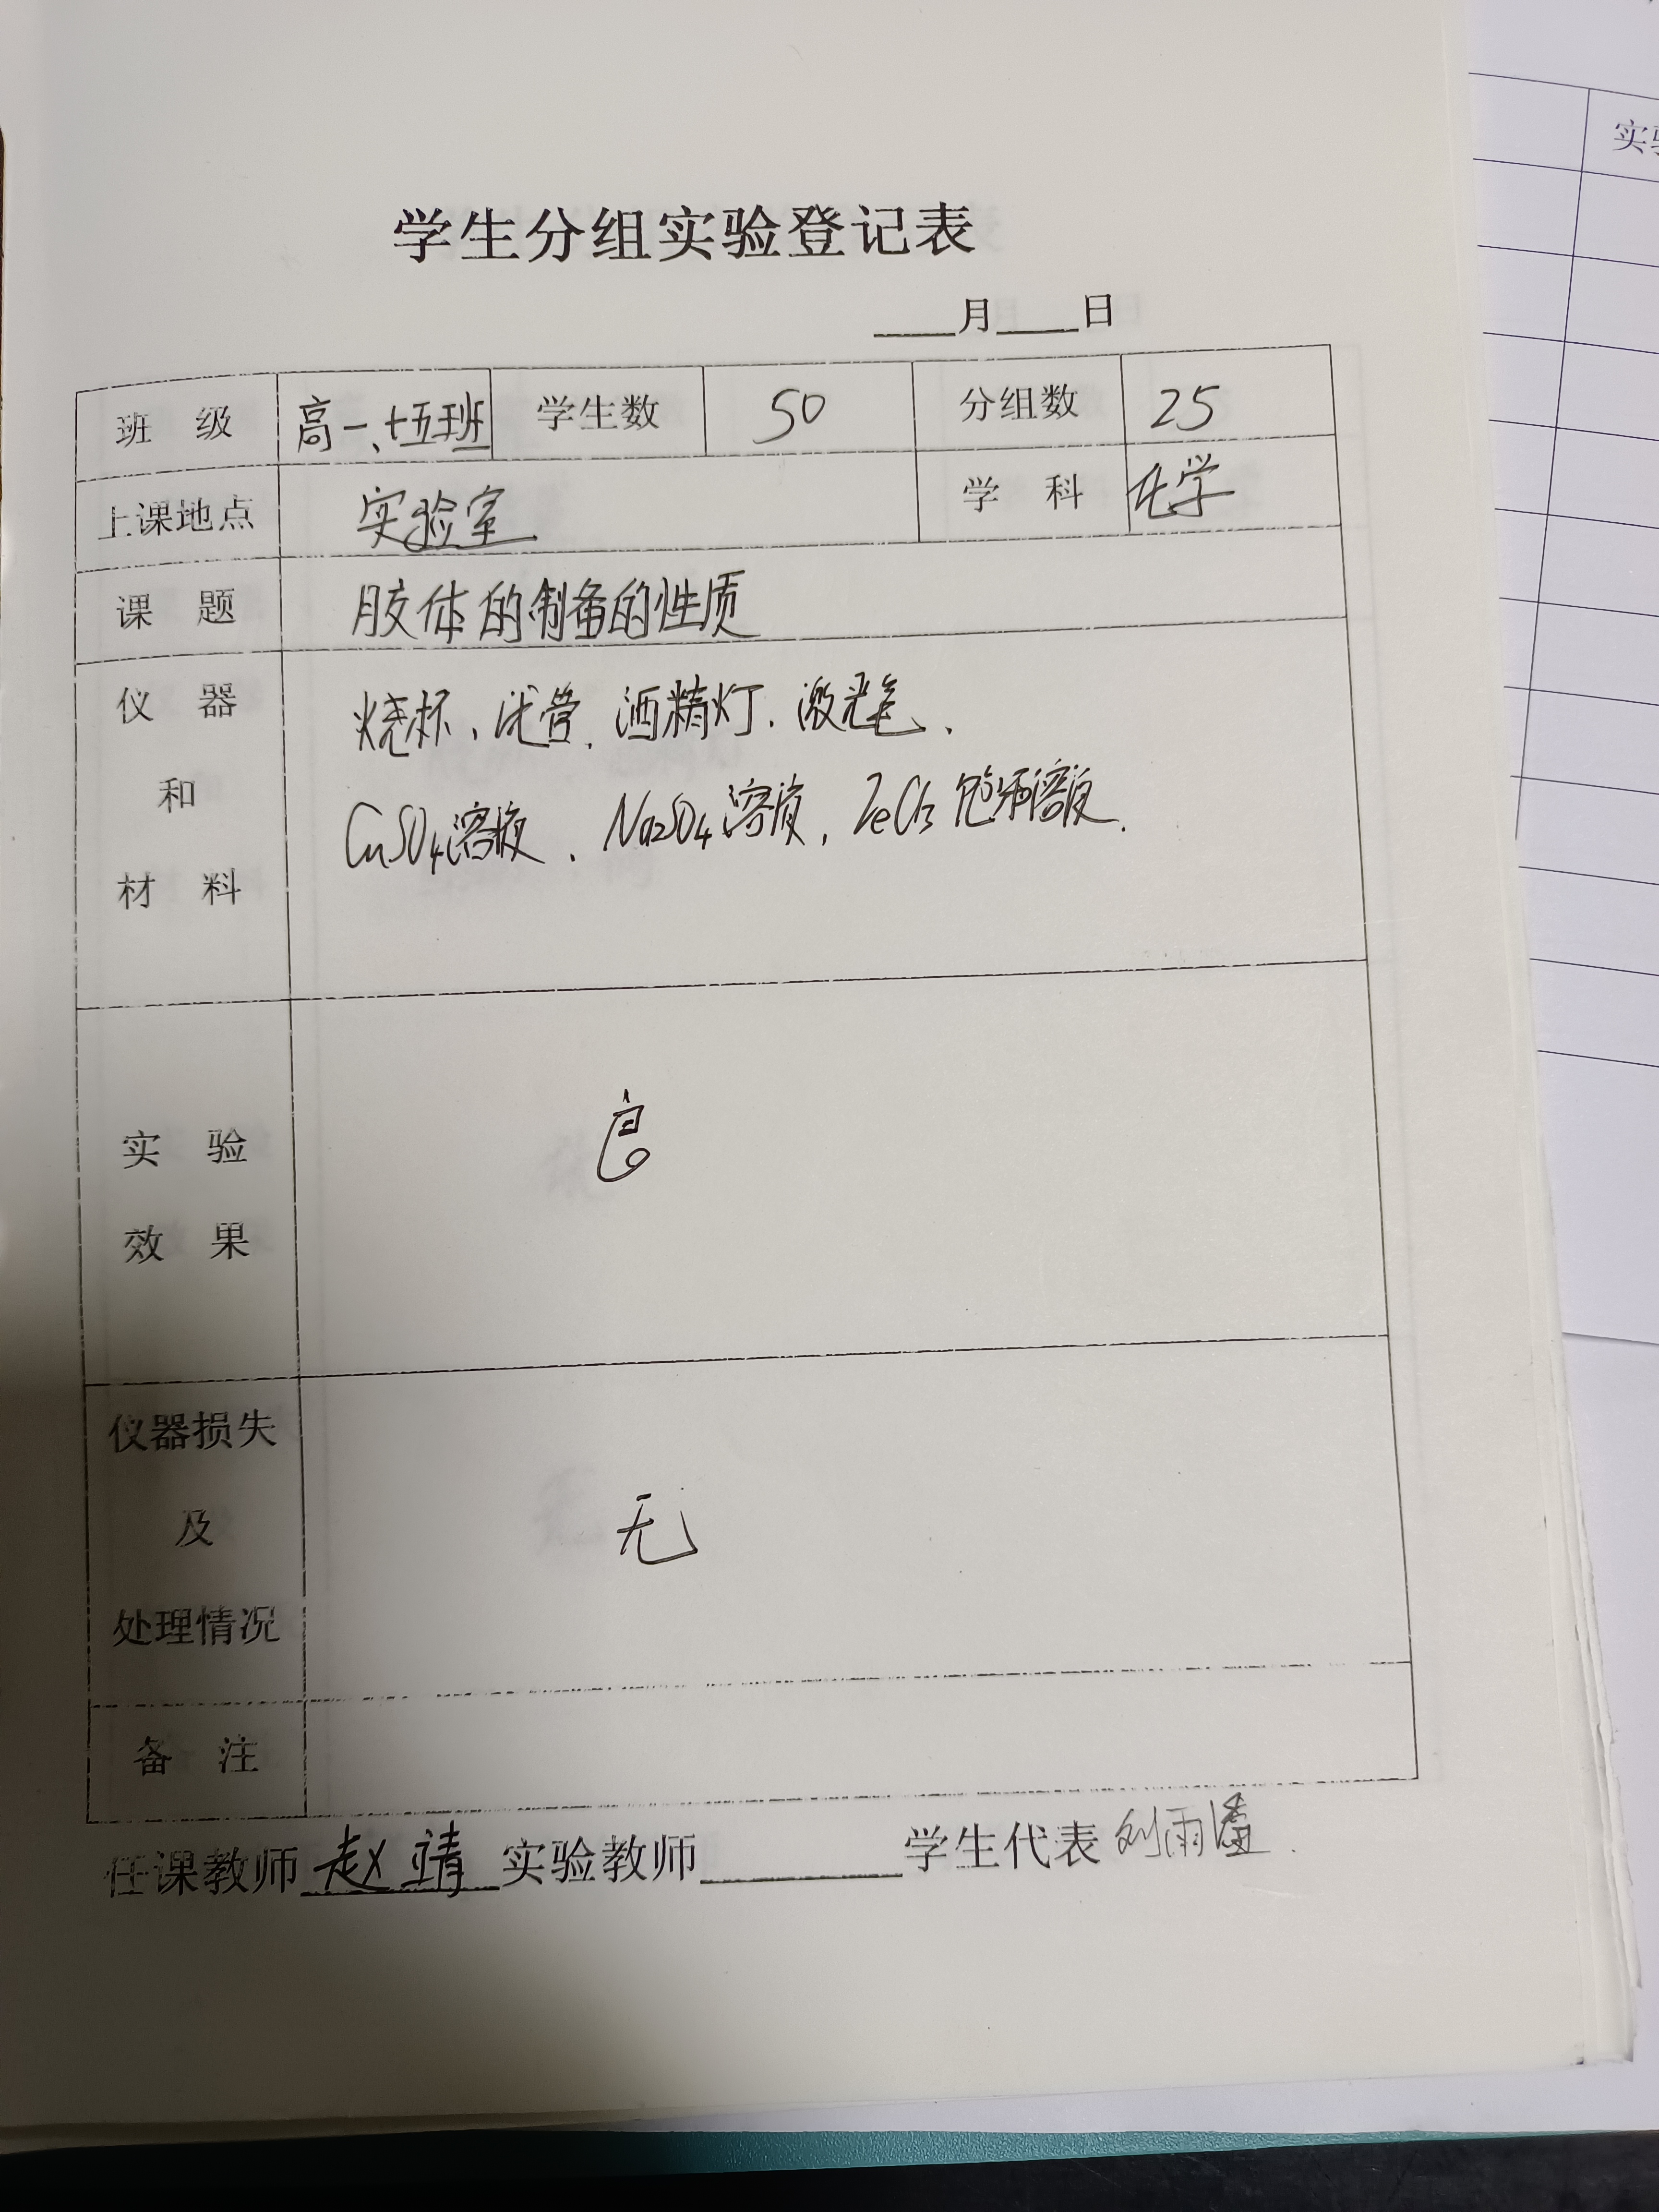 学生分组实验登记表
____月____日
班 级 高一、十五班 学生数 50 分组数 25
上课地点 实验室 学 科 化学
课 题 胶体的制备的性质
仪 器 和 材 料
烧杯、试管、酒精灯、激光笔、
CuSO4溶液、Na2SO4溶液,FeCl3饱和溶液.
实 验 效 果 良
仪器损失 及 处理情况 无
备 注
任课教师 赵靖 实验教师________学生代表 刘雨
实验